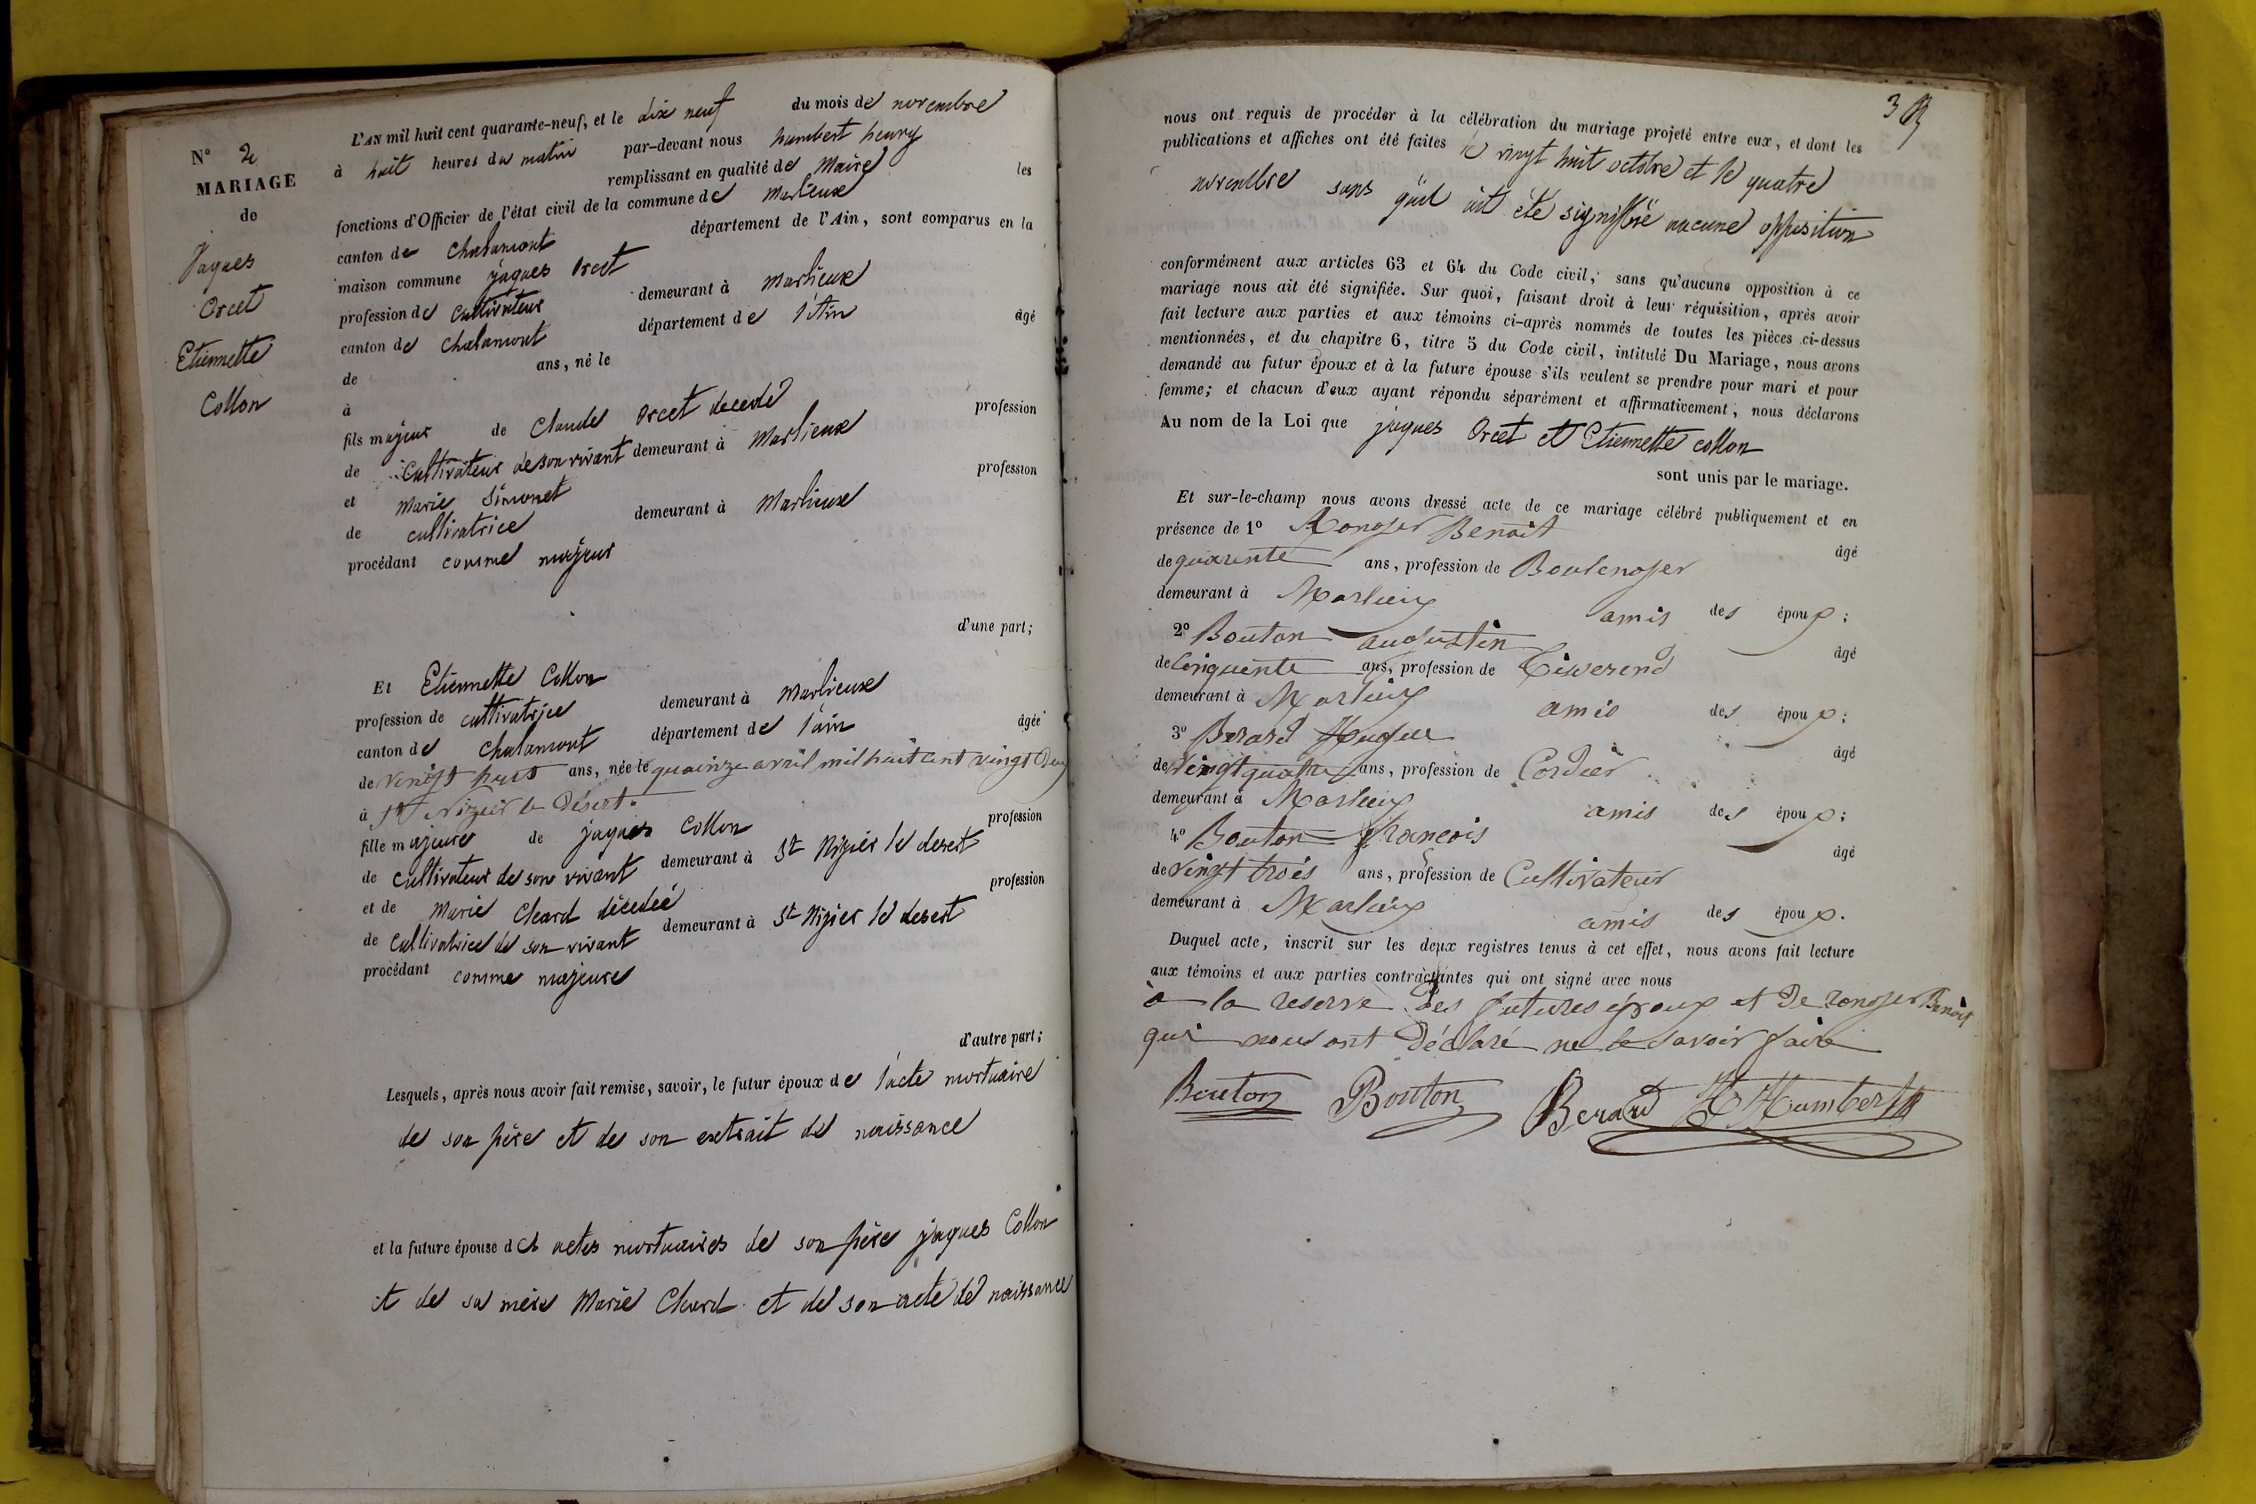 N° 2
MARIAGE
de
Jaques
Orcet
Etiennette
Collon
L'AN mil huit cent quarante-neuf, et le dix neuf du mois de novembre
à huit heures du matin par-devant nous humbert henry
remplissant en qualité de Maire les
fonctions d'Officier de l'état civil de la commune de Marlieux
canton de Chalamont département de l'Ain, sont comparus en la
maison commune jaques Orcet
profession de Cultivateur demeurant à Marlieux
canton de Chalamont département de l'Ain âgé
de ans, né le
à
fils majeur de Claude Orcet decedé profession
de Cultivateur de son vivant demeurant à Marlieux
et Marie Simonet profession
de cultivatrice demeurant à Marlieux
procédant comme majeur
d'une part;
Et Etiennette Collon
profession de cultivatrice demeurant à Marlieux
canton de Chalamont département de l'ain âgée
de vingt huit ans, née le quainze avril mil huit cent vingt
à St Nizier le Désert.
fille majeure de jaques Collon profession
de cultivateur de son vivant demeurant à St Nizier le desert
et de Marie Chard décedée profession
de Cultivatrice de son vivant demeurant à St Nizier le desert
procédant comme majeure
d'autre part;
Lesquels, après nous avoir fait remise, savoir, le futur époux de l'acte mortuaire
de son père et de son extrait de naissance
et la future épouse des actes mortuaires de son père jaques Collon
et de sa mère Marie Chard et de son acte de naissance
3
nous ont requis de procéder à la célébration du mariage projeté entre eux, et dont les
publications et affiches ont été faites le vingt huit octobre et le quatre
novembre sans qu'il ait été signifiée aucune opposition
conformément aux articles 63 et 64 du Code civil, sans qu'aucune opposition à ce
mariage nous ait été signifiée. Sur quoi, faisant droit à leur réquisition, après avoir
fait lecture aux parties et aux témoins ci-après nommés de toutes les pièces ci-dessus
mentionnées, et du chapitre 6, titre 5 du Code civil, intitulé Du Mariage, nous avons
demandé au futur époux et à la future épouse s'ils veulent se prendre pour mari et pour
femme; et chacun d'eux ayant répondu séparément et affirmativement, nous déclarons
Au nom de la Loi que jaques Orcet et Etiennette collon
sont unis par le mariage.
Et sur-le-champ nous avons dressé acte de ce mariage célébré publiquement et en
présence de 1° Ronojer Benoit âgé
de quarente ans, profession de Boulenojer
demeurant à Marlieux amis des époux;
2° Bouton augustin âgé
de Cinquente ans, profession de Tisserend
demeurant à Marlieux amis des époux;
3° Berard Hugue âgé
de vingt quatre ans, profession de Cordier
demeurant à Marlieux amis des époux;
4° Bouton françois âgé
de vingt trois ans, profession de Cultivateur
demeurant à Marlieux amis des époux.
Duquel acte, inscrit sur les deux registres tenus à cet effet, nous avons fait lecture
aux témoins et aux parties contractantes qui ont signé avec nous
à la reserve des futures époux et de ronojer Benoit
qui nous ont déclaré ne le savoir faire
Bouton Bouton Berard H Humbert